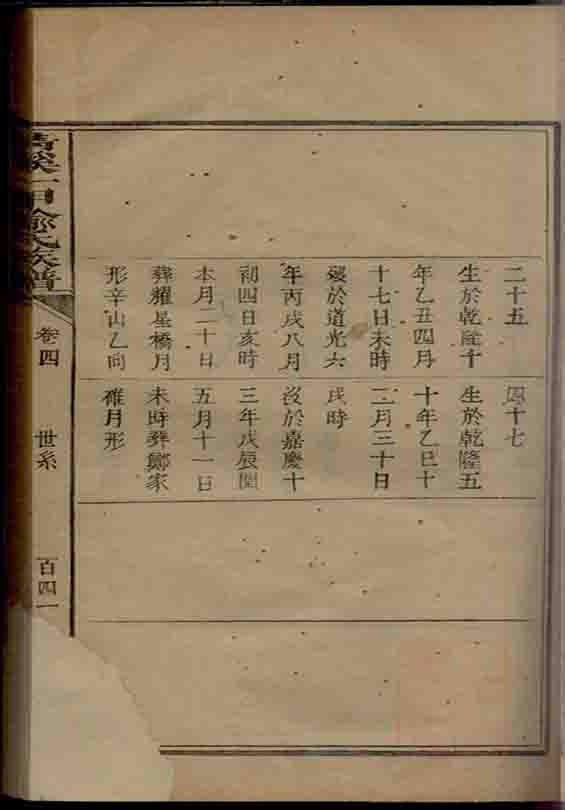 二十五
生於乾隆十
年乙丑四月
十七日未時
歿於道光六
年丙戌八月
初四日亥時
本月二十日
葬耀星橋月
形辛山乙向
四十七
生於乾隆五
十年乙巳十
二月三十日
戌時
沒於嘉慶十
三年戊辰閏
五月十一日
未時葬鄭家
碓月形
溪一甲氏族譜
卷四
世系
百四一